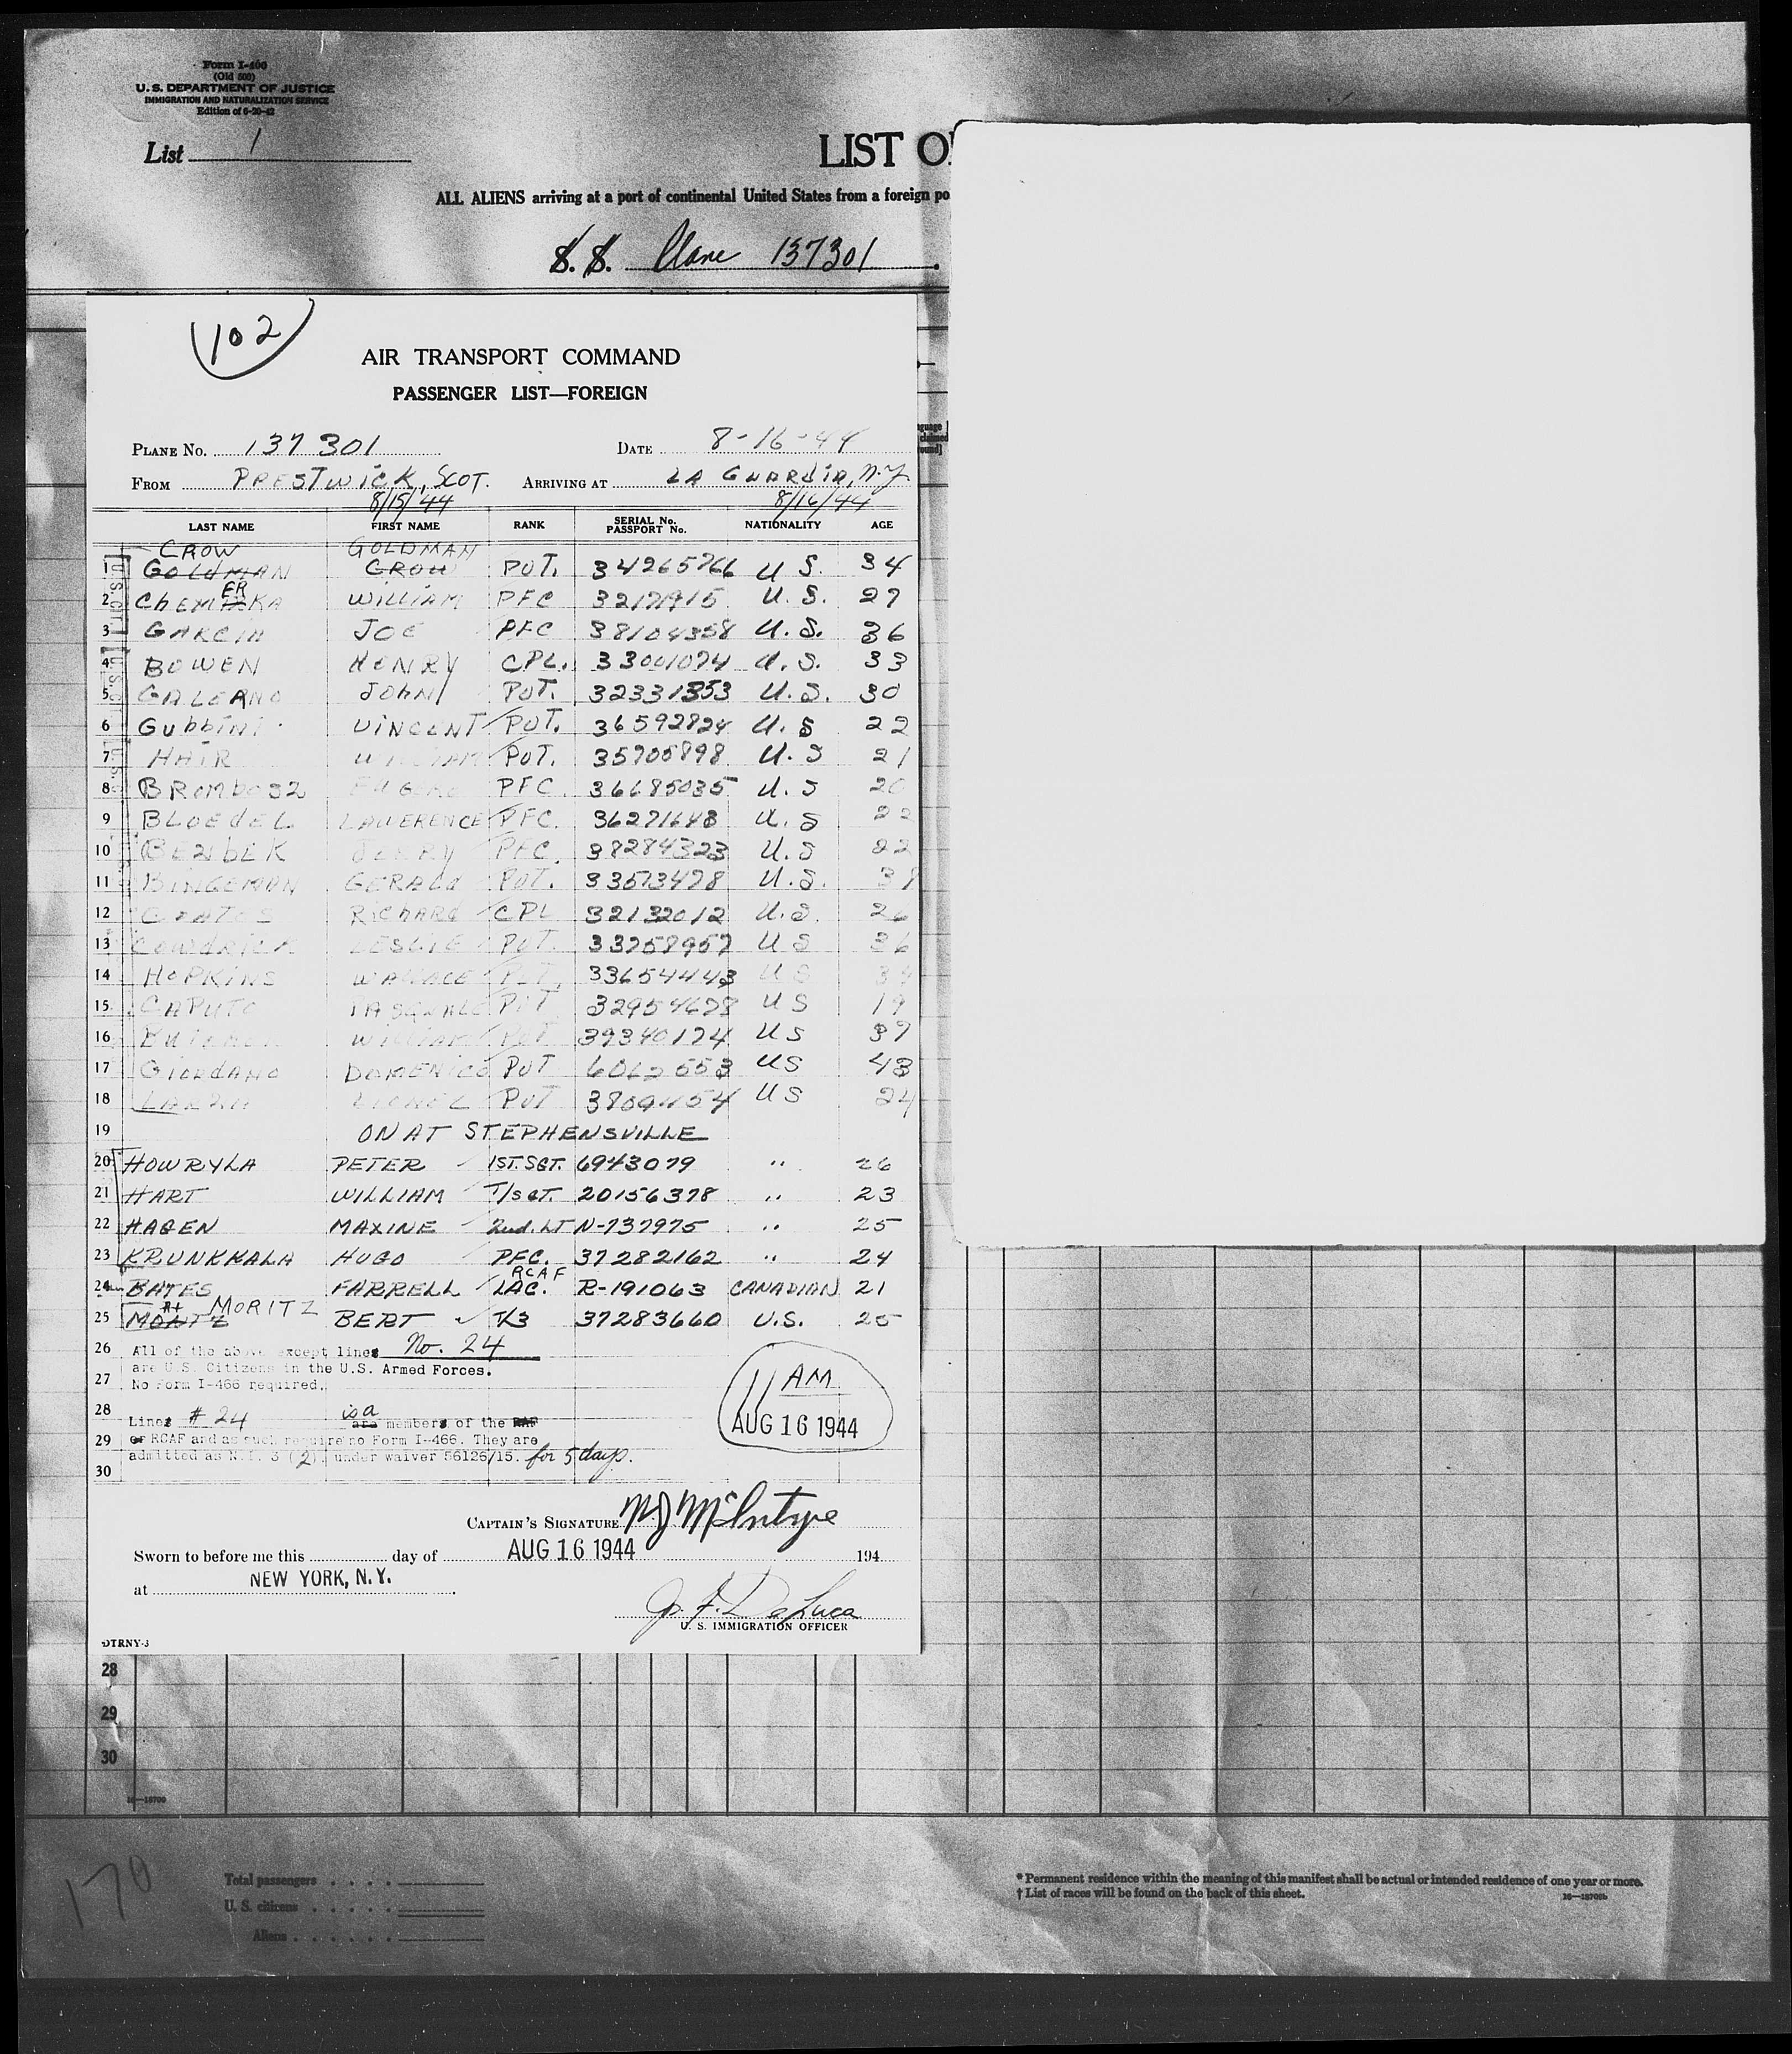 Form I-400
(Old 500)
U. S. DEPARTMENT OF JUSTICE
IMMIGRATION AND NATURALIZATION SERVICE
Edition of 6-20-42
List 1
LIST O
ALL ALIENS arriving at a port of continental United States from a foreign po
S. S. Plane 137301
102
AIR TRANSPORT COMMAND
PASSENGER LIST—FOREIGN
PLANE No. 137 301 DATE 8-16-44
FROM PRESTWICK, SCOT. ARRIVING AT LA GUARDIA, N.Y.
8/15/44 8/16/44
LAST NAME FIRST NAME RANK SERIAL No. PASSPORT No. NATIONALITY AGE
CROW GOLDMAN
1 GOLDMAN CROW PVT. 34265766 U S. 34
ER
2 CHEM KA WILLIAM PFC 3217915 U.S. 27
3 GARCIA JOE PFC 38104358 U.S. 36
4 BOWEN HENRY CPL. 33001074 U.S. 33
5 GALEANO JOHN PVT. 32331353 U.S. 30
6 GUbbINI VINCENT PVT. 36592824 U.S 22
7 HAIR PVT. 35705898 U.S 21
8 BROMbOSZ PFC. 36685035 U.S 20
9 BLOEdEL LAWERENCE PFC. 36271648 U.S 22
10 BENbEK JERRY PFC. 38284323 U.S 22
11 BINGEMAN GERALd PVT. 33573478 U.S.
12 RICHARd CPL 32132012 U.S. 26
13 LESLIE PVT. 33258957 U S 36
14 HOPKINS WALLACE PVT. 33654443 U S
15 CAPUTO PASQUALE PVT 32954678 U S 19
16 WILLIAM PVT 39340174 U S 37
17 GIORdANO DOMENICO PVT US 43
18 LIONEL PVT U S 24
19 ON AT STEPHENSVILLE
20 HOWRYLA PETER 1ST. SGT. 6943079 " 26
21 HART WILLIAM T/SGT. 20156378 " 23
22 HAGEN MAXINE 2nd. LT N-737975 " 25
23 KRUNKKALA HUGO PFC. 37282162 " 24
RCAF
24 BATES FARRELL LAC. R-191063 CANADIAN 21
MORITZ
25 BERT T/3 37283660 U.S. 25
26 All of the above except lines No. 24
are U.S. Citizens in the U.S. Armed Forces.
27 No Form I-466 required.
11 AM
AUG 16 1944
28
Lines # 24 is a are members of the RAF
29 or RCAF and as such require no Form I-466. They are
admitted as N.I. 3 (2) under waiver 56126/15. for 5 days.
30
CAPTAIN'S SIGNATURE McIntyre
Sworn to before me this day of AUG 16 1944 194
at NEW YORK, N.Y.
J. F. DeLuca
U. S. IMMIGRATION OFFICER
DTRNY-3
28
29
30
16—18700
170
Total passengers
U. S. citizens
Aliens
* Permanent residence within the meaning of this manifest shall be actual or intended residence of one year or more.
† List of races will be found on the back of this sheet.